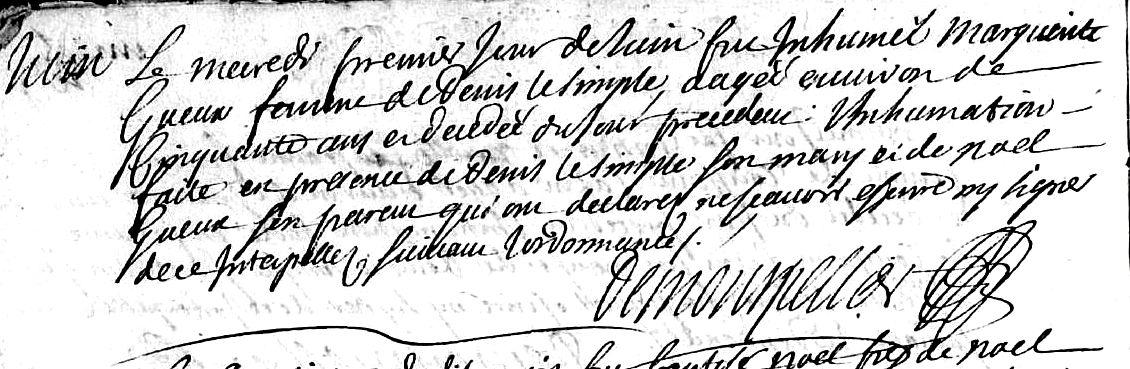 Juin Le mercredi premier Jour de Juin fut Inhumée Marguerite
Gueux femme de Denis le simple, aagée environ de
Cinquante ans et decedée du Jour precedent. Inhumation
faite en presence de Denis le simple son mary et de noel
Gueux son parent qui ont declarez ne scauoir escrire ny signer
de ce Interpellez suiuant l'ordonnance.
Demonpellier
noel fils de noel